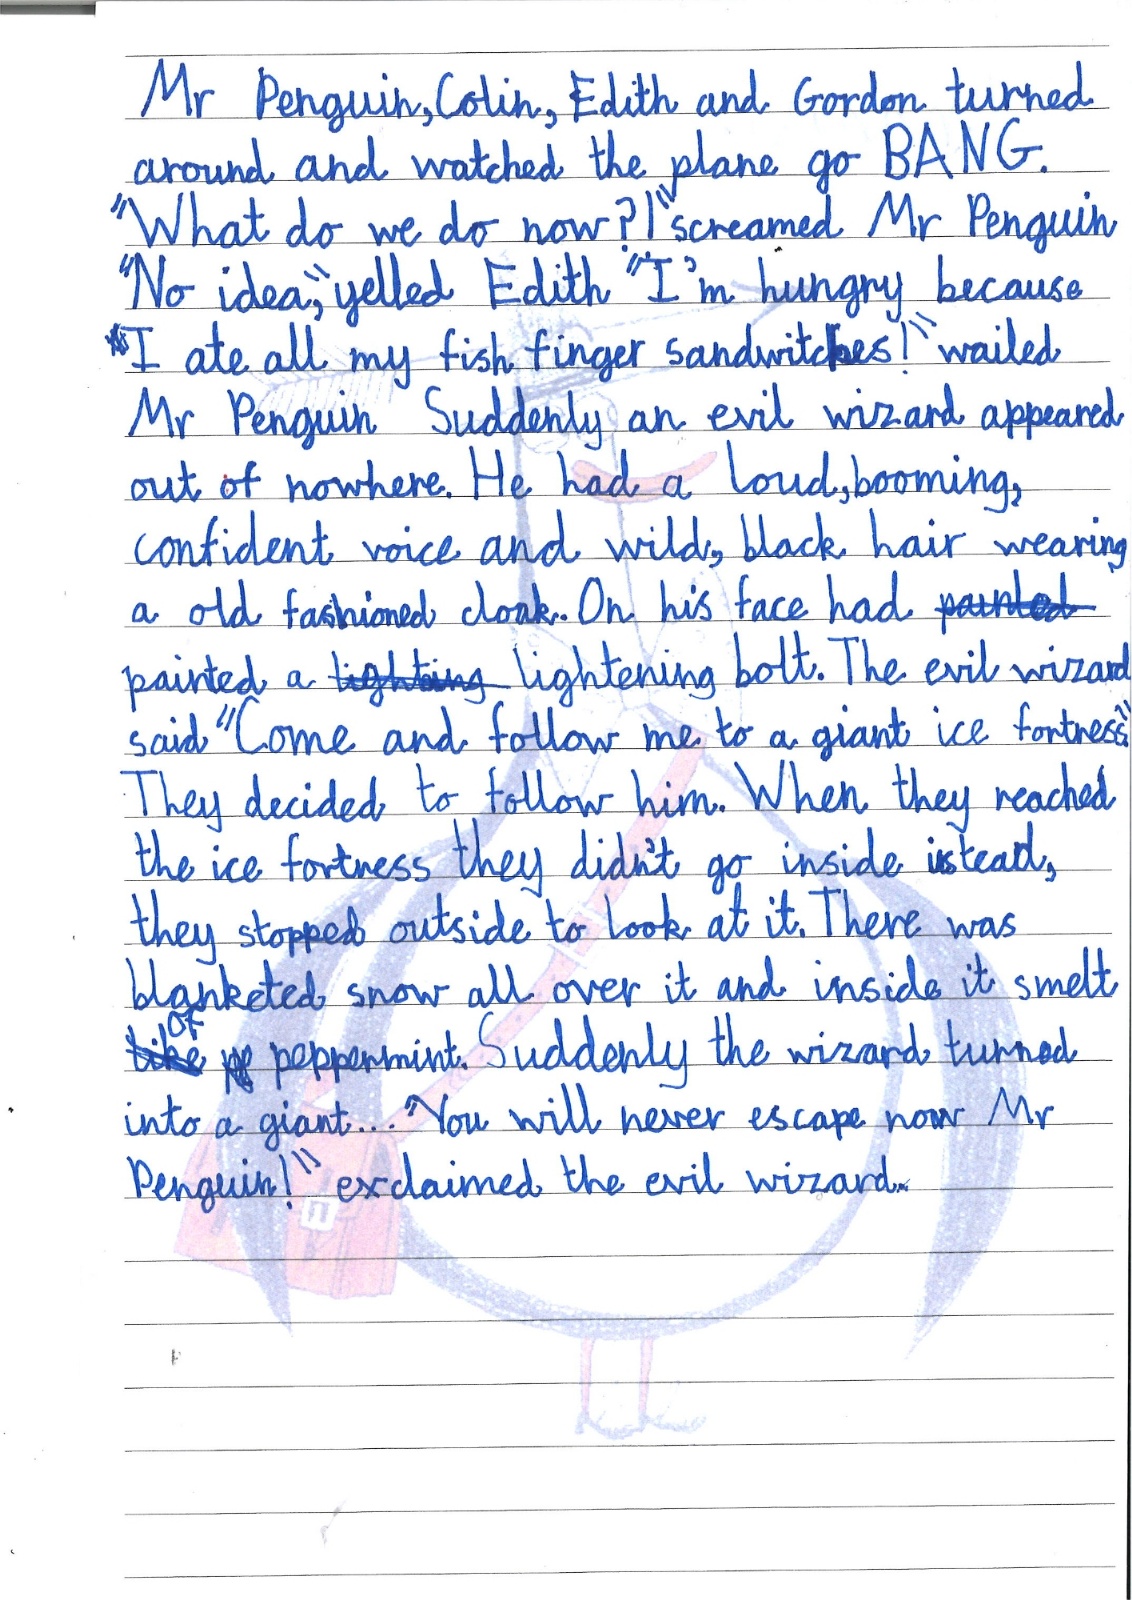 Mr Penguin, Colin, Edith and Gordon turned
around and watched the plane go BANG.
"What do we do now?!" screamed Mr Penguin
"No idea," yelled Edith "I'm hungry because
I ate all my fish finger sandwitches!" wailed
Mr Penguin Suddenly an evil wizard appeared
out of nowhere. He had a loud, booming,
confident voice and wild, black hair wearing
a old fashioned cloak. On his face had painted
painted a lighting lightening bolt. The evil wizard
said "Come and follow me to a giant ice fortress."
They decided to follow him. When they reached
the ice fortress they didn't go inside istead,
they stopped outside to look at it. There was
blanketed snow all over it and inside it smelt
like of peppermint. Suddenly the wizard turned
into a giant... "You will never escape now Mr
Penguin!" exclaimed the evil wizard.